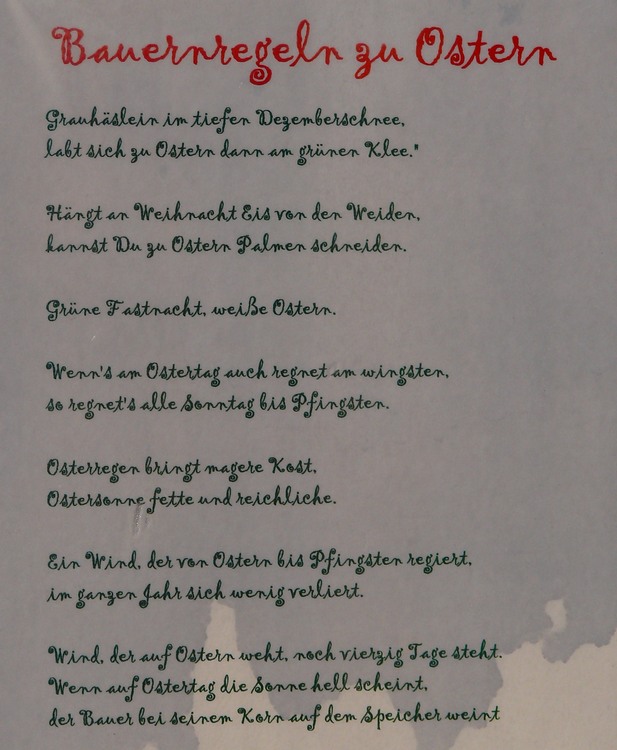 Bauernregeln zu Ostern
Grauhäslein im tiefen Dezemberschnee,
labt sich zu Ostern dann am grünen Klee."
Hängt an Weihnacht Eis von den Weiden,
kannst Du zu Ostern Palmen schneiden.
Grüne Fastnacht, weiße Ostern.
Wenn's am Ostertag auch regnet am wingsten,
so regnet's alle Sonntag bis Pfingsten.
Osterregen bringt magere Kost,
Ostersonne fette und reichliche.
Ein Wind, der von Ostern bis Pfingsten regiert,
im ganzen Jahr sich wenig verliert.
Wind, der auf Ostern weht, noch vierzig Tage steht.
Wenn auf Ostertag die Sonne hell scheint,
der Bauer bei seinem Korn auf dem Speicher weint